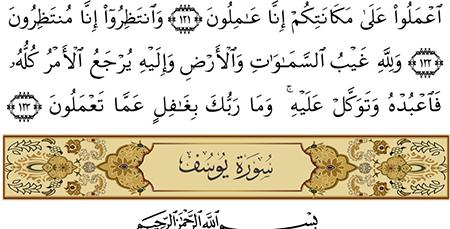 ٱعۡمَلُواْ عَلَىٰ مَكَانَتِكُمۡ إِنَّا عَٰمِلُونَ ١٢١ وَٱنتَظِرُوٓاْ إِنَّا مُنتَظِرُونَ
١٢٢ وَلِلَّهِ غَيۡبُ ٱلسَّمَٰوَٰتِ وَٱلۡأَرۡضِ وَإِلَيۡهِ يُرۡجَعُ ٱلۡأَمۡرُ كُلُّهُۥ
فَٱعۡبُدۡهُ وَتَوَكَّلۡ عَلَيۡهِۚ وَمَا رَبُّكَ بِغَٰفِلٍ عَمَّا تَعۡمَلُونَ ١٢٣
سُورَةُ يُوسُفَ
بِسۡمِ ٱللَّهِ ٱلرَّحۡمَٰنِ ٱلرَّحِيمِ